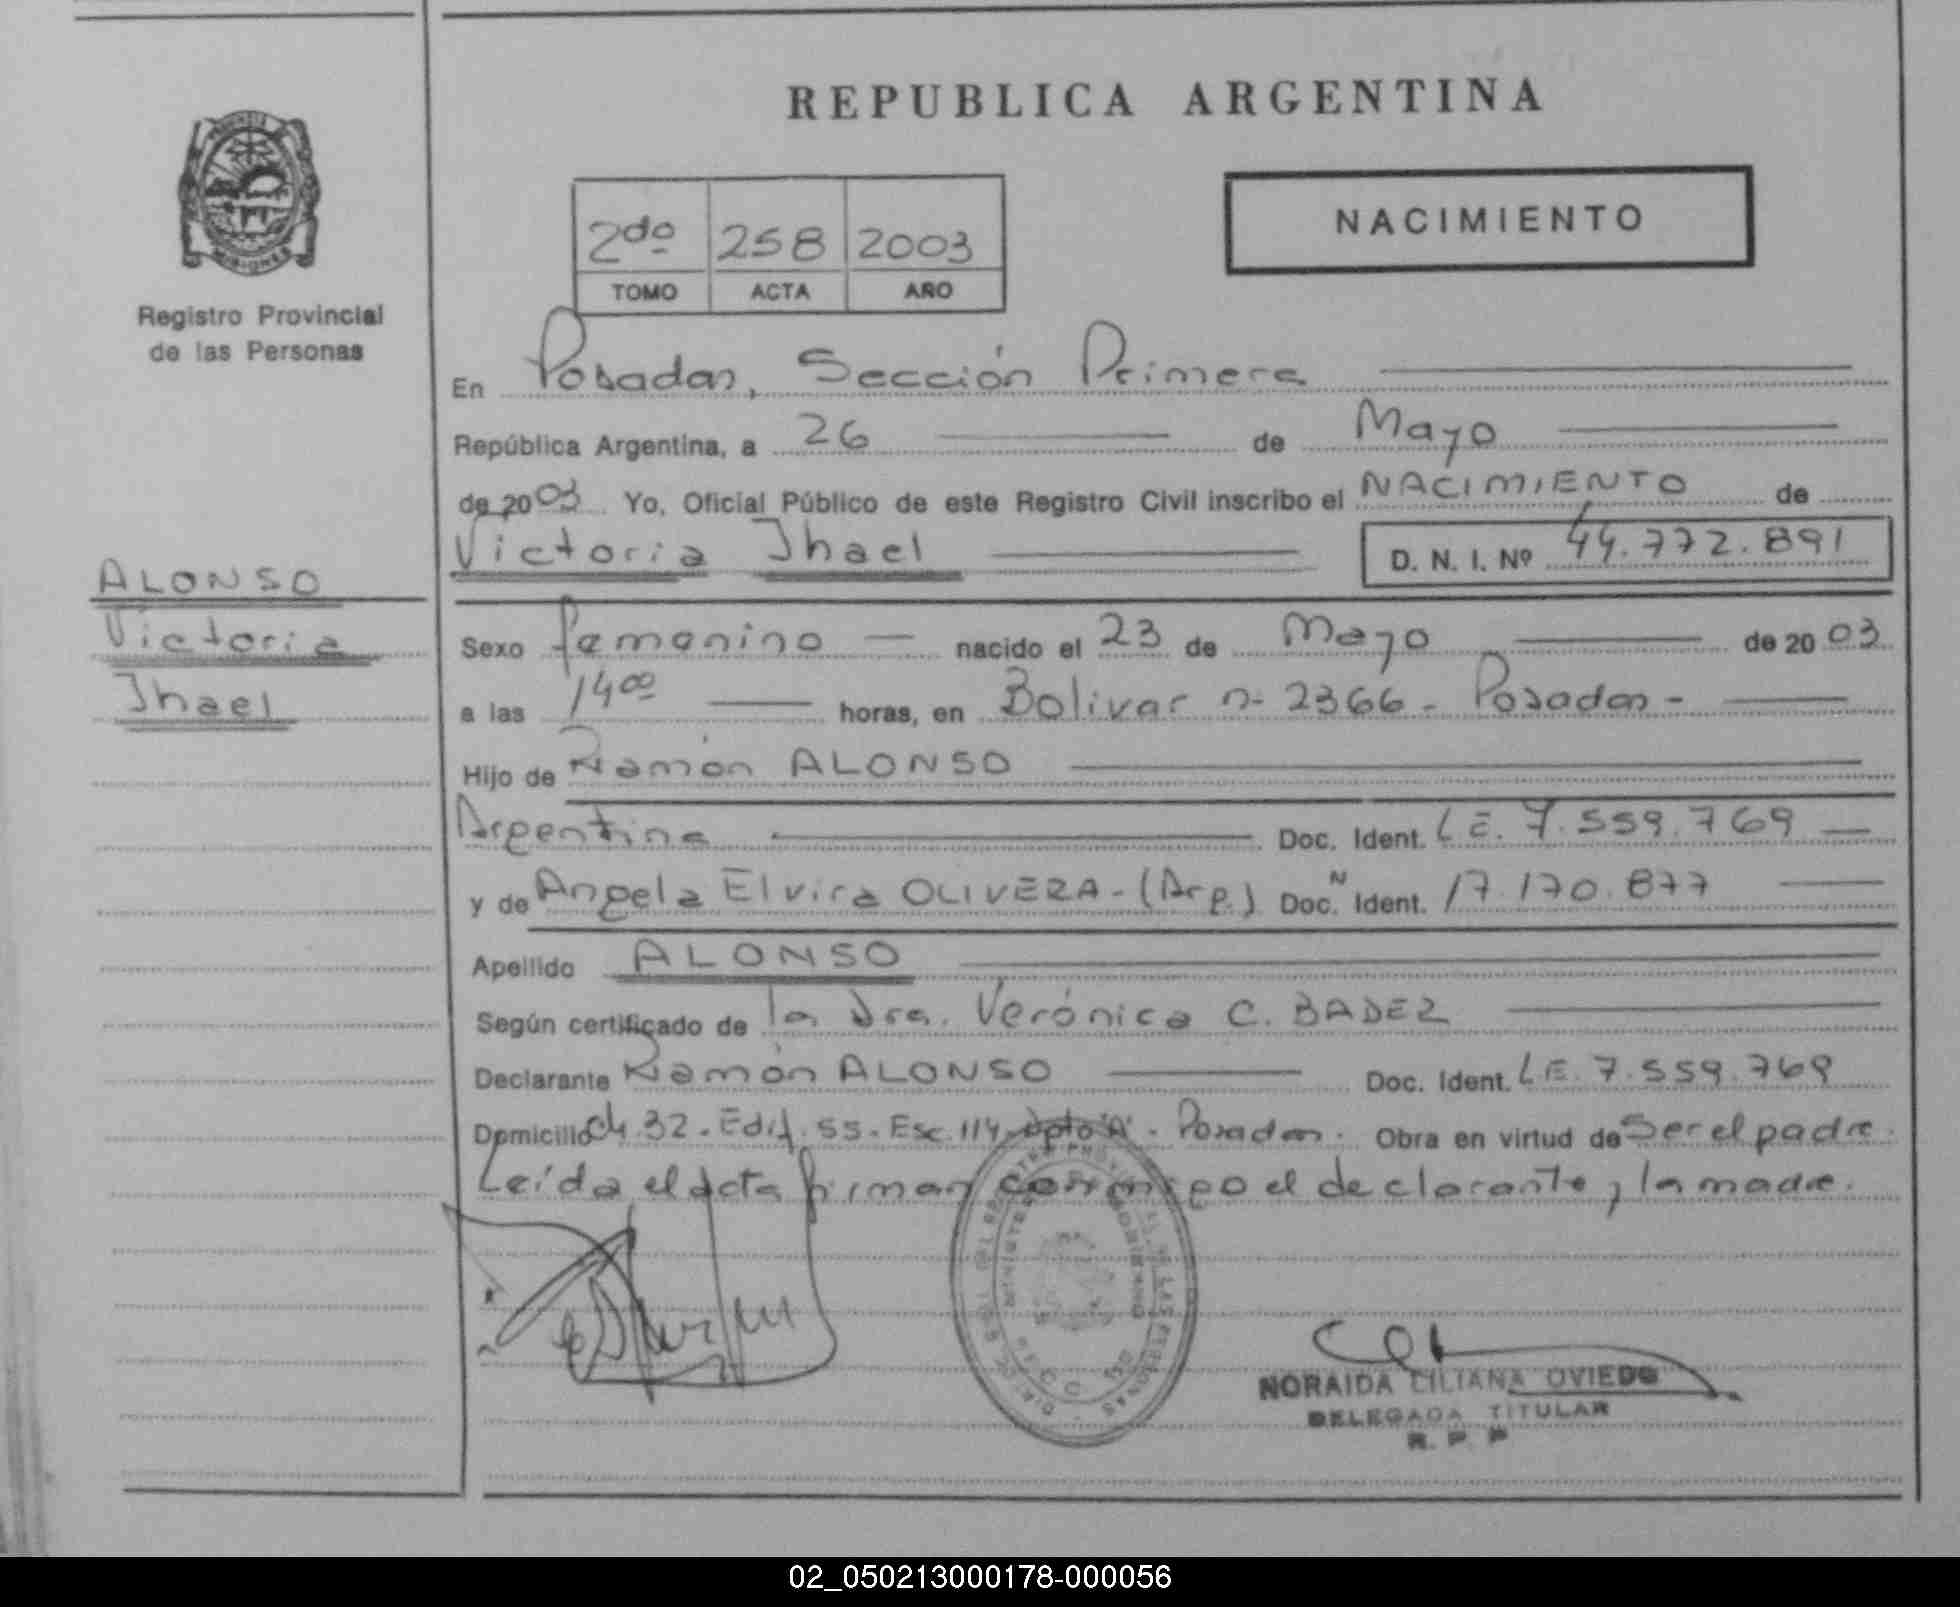 REPUBLICA ARGENTINA
NACIMIENTO
2do 258 2003
TOMO ACTA AÑO
Registro Provincial
de las Personas
En Posadas, Sección Primera
República Argentina, a 26 de Mayo
de 2003 Yo, Oficial Público de este Registro Civil inscribo el NACIMIENTO de
Victoria Jhael D. N. I. Nº 44.772.891
ALONSO
Victoria
Jhael
Sexo femenino nacido el 23 de Mayo de 2003
a las 14 00 horas, en Bolivar n- 2366 - Posadas -
Hijo de Ramón ALONSO
Argentina Doc. Ident. LE. 7.559.769
y de Angela Elvira OLIVERA - (Arg.) Doc. N Ident. 17.170.877
Apellido ALONSO
Según certificado de la Dra. Verónica C. BADER
Declarante Ramón ALONSO Doc. Ident. LE. 7.559.769
Domicilio Ch. 32 - Edif. 55 - Esc. 114 - Dpto "A" - Posadas. Obra en virtud de Ser el padre.
Leída el acta firman conmigo el declarante y la madre.
NORAIDA LILIANA OVIEDO
DELEGADA TITULAR
R. P. P
02_050213000178-000056